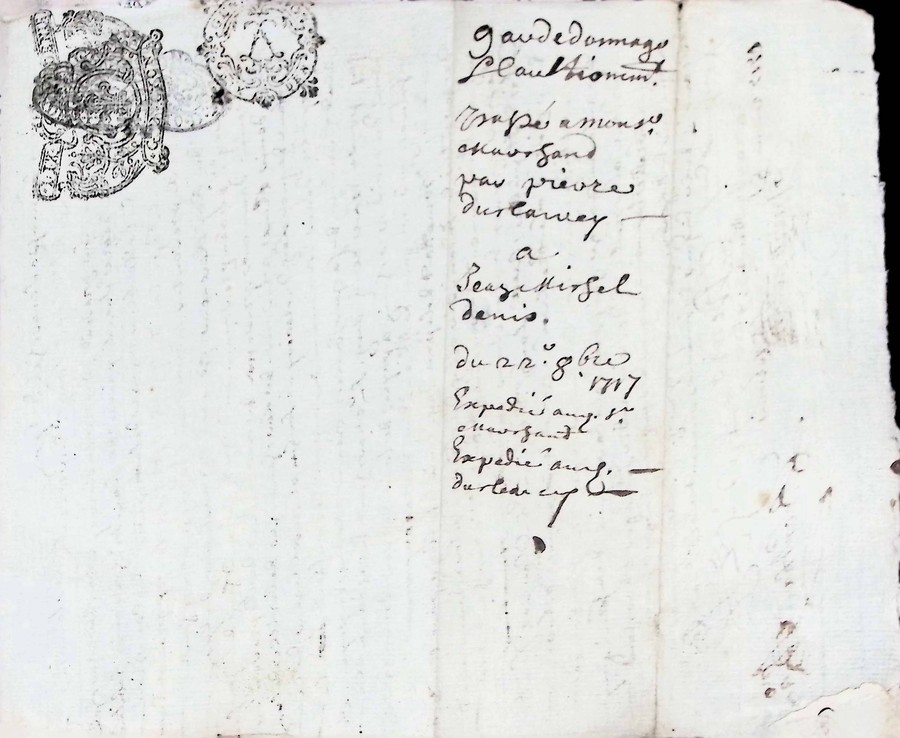 garde dommage
& Cautionnemt.
Passé a monsr.
Marchand
par pierre
a
Jean Michel
denis.
du 22e. 8bre
1717
Expedié aud. Sr.
Marchand
Expedié aud.